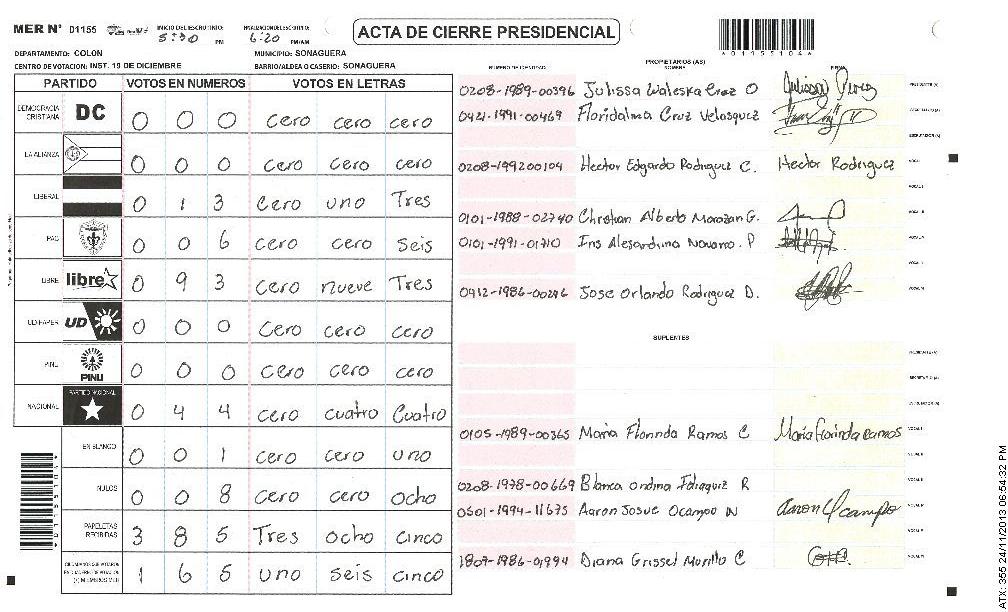 MER N° 01155 INICIO DEL ESCRUTINIO: 5:30 PM FINALIZACION DEL ESCRUTINIO: 6:20 PM/AM
ACTA DE CIERRE PRESIDENCIAL
*01155104*
DEPARTAMENTO: COLON MUNICIPIO: SONAGUERA
CENTRO DE VOTACION: INST. 19 DE DICIEMBRE BARRIO/ALDEA O CASERIO: SONAGUERA
PARTIDO VOTOS EN NUMEROS VOTOS EN LETRAS
DEMOCRACIA CRISTIANA DC 0 0 0 cero cero cero
LA ALIANZA 0 0 0 cero cero cero
LIBERAL 0 1 3 cero uno Tres
PAC 0 0 6 cero cero seis
LIBRE libre 0 9 3 cero nueve Tres
UD-FAPER UD 0 0 0 cero cero cero
PINU PINU 0 0 0 cero cero cero
NACIONAL PARTIDO NACIONAL 0 4 4 cero cuatro Cuatro
EN BLANCO 0 0 1 cero cero uno
NULOS 0 0 8 cero cero ocho
PAPELETAS RECIBIDAS 3 8 5 Tres ocho cinco
CIUDADANOS QUE VOTARON (+) MIEMBROS MER 1 6 5 uno seis cinco
NUMERO DE IDENTIDAD PROPIETARIOS (AS) NOMBRE FIRMA
0208-1989-00396 Julissa Waleska Cruz O PRESIDENTE (A)
0421-1991-00469 Floridalma Cruz Velasquez SECRETARIO (A)
ESCRUTADOR (A)
0208-199200104 Hector Edgardo Rodriguez C. Hector Rodriguez VOCAL I
0101-1988-02740 Christian Alberto Morazan G.
0101-1991-01710 Iris Alesandrina Navarro. P
0412-1986-00246 Jose Orlando Rodriguez D.
SUPLENTES
PRESIDENTE (A)
SECRETARIO (A)
ESCRUTADOR (A)
0105-1989-00365 Maria Florinda Ramos C Maria florinda ramos VOCAL I
0208-1978-00669 Blanca ondina R
0501-1994-11675 Aaron Josue Ocampo N Aaron Ocampo
1807-1986-01994 Diana Grissel Murillo C
ATX: 355 24/11/2013 06:54:32 PM